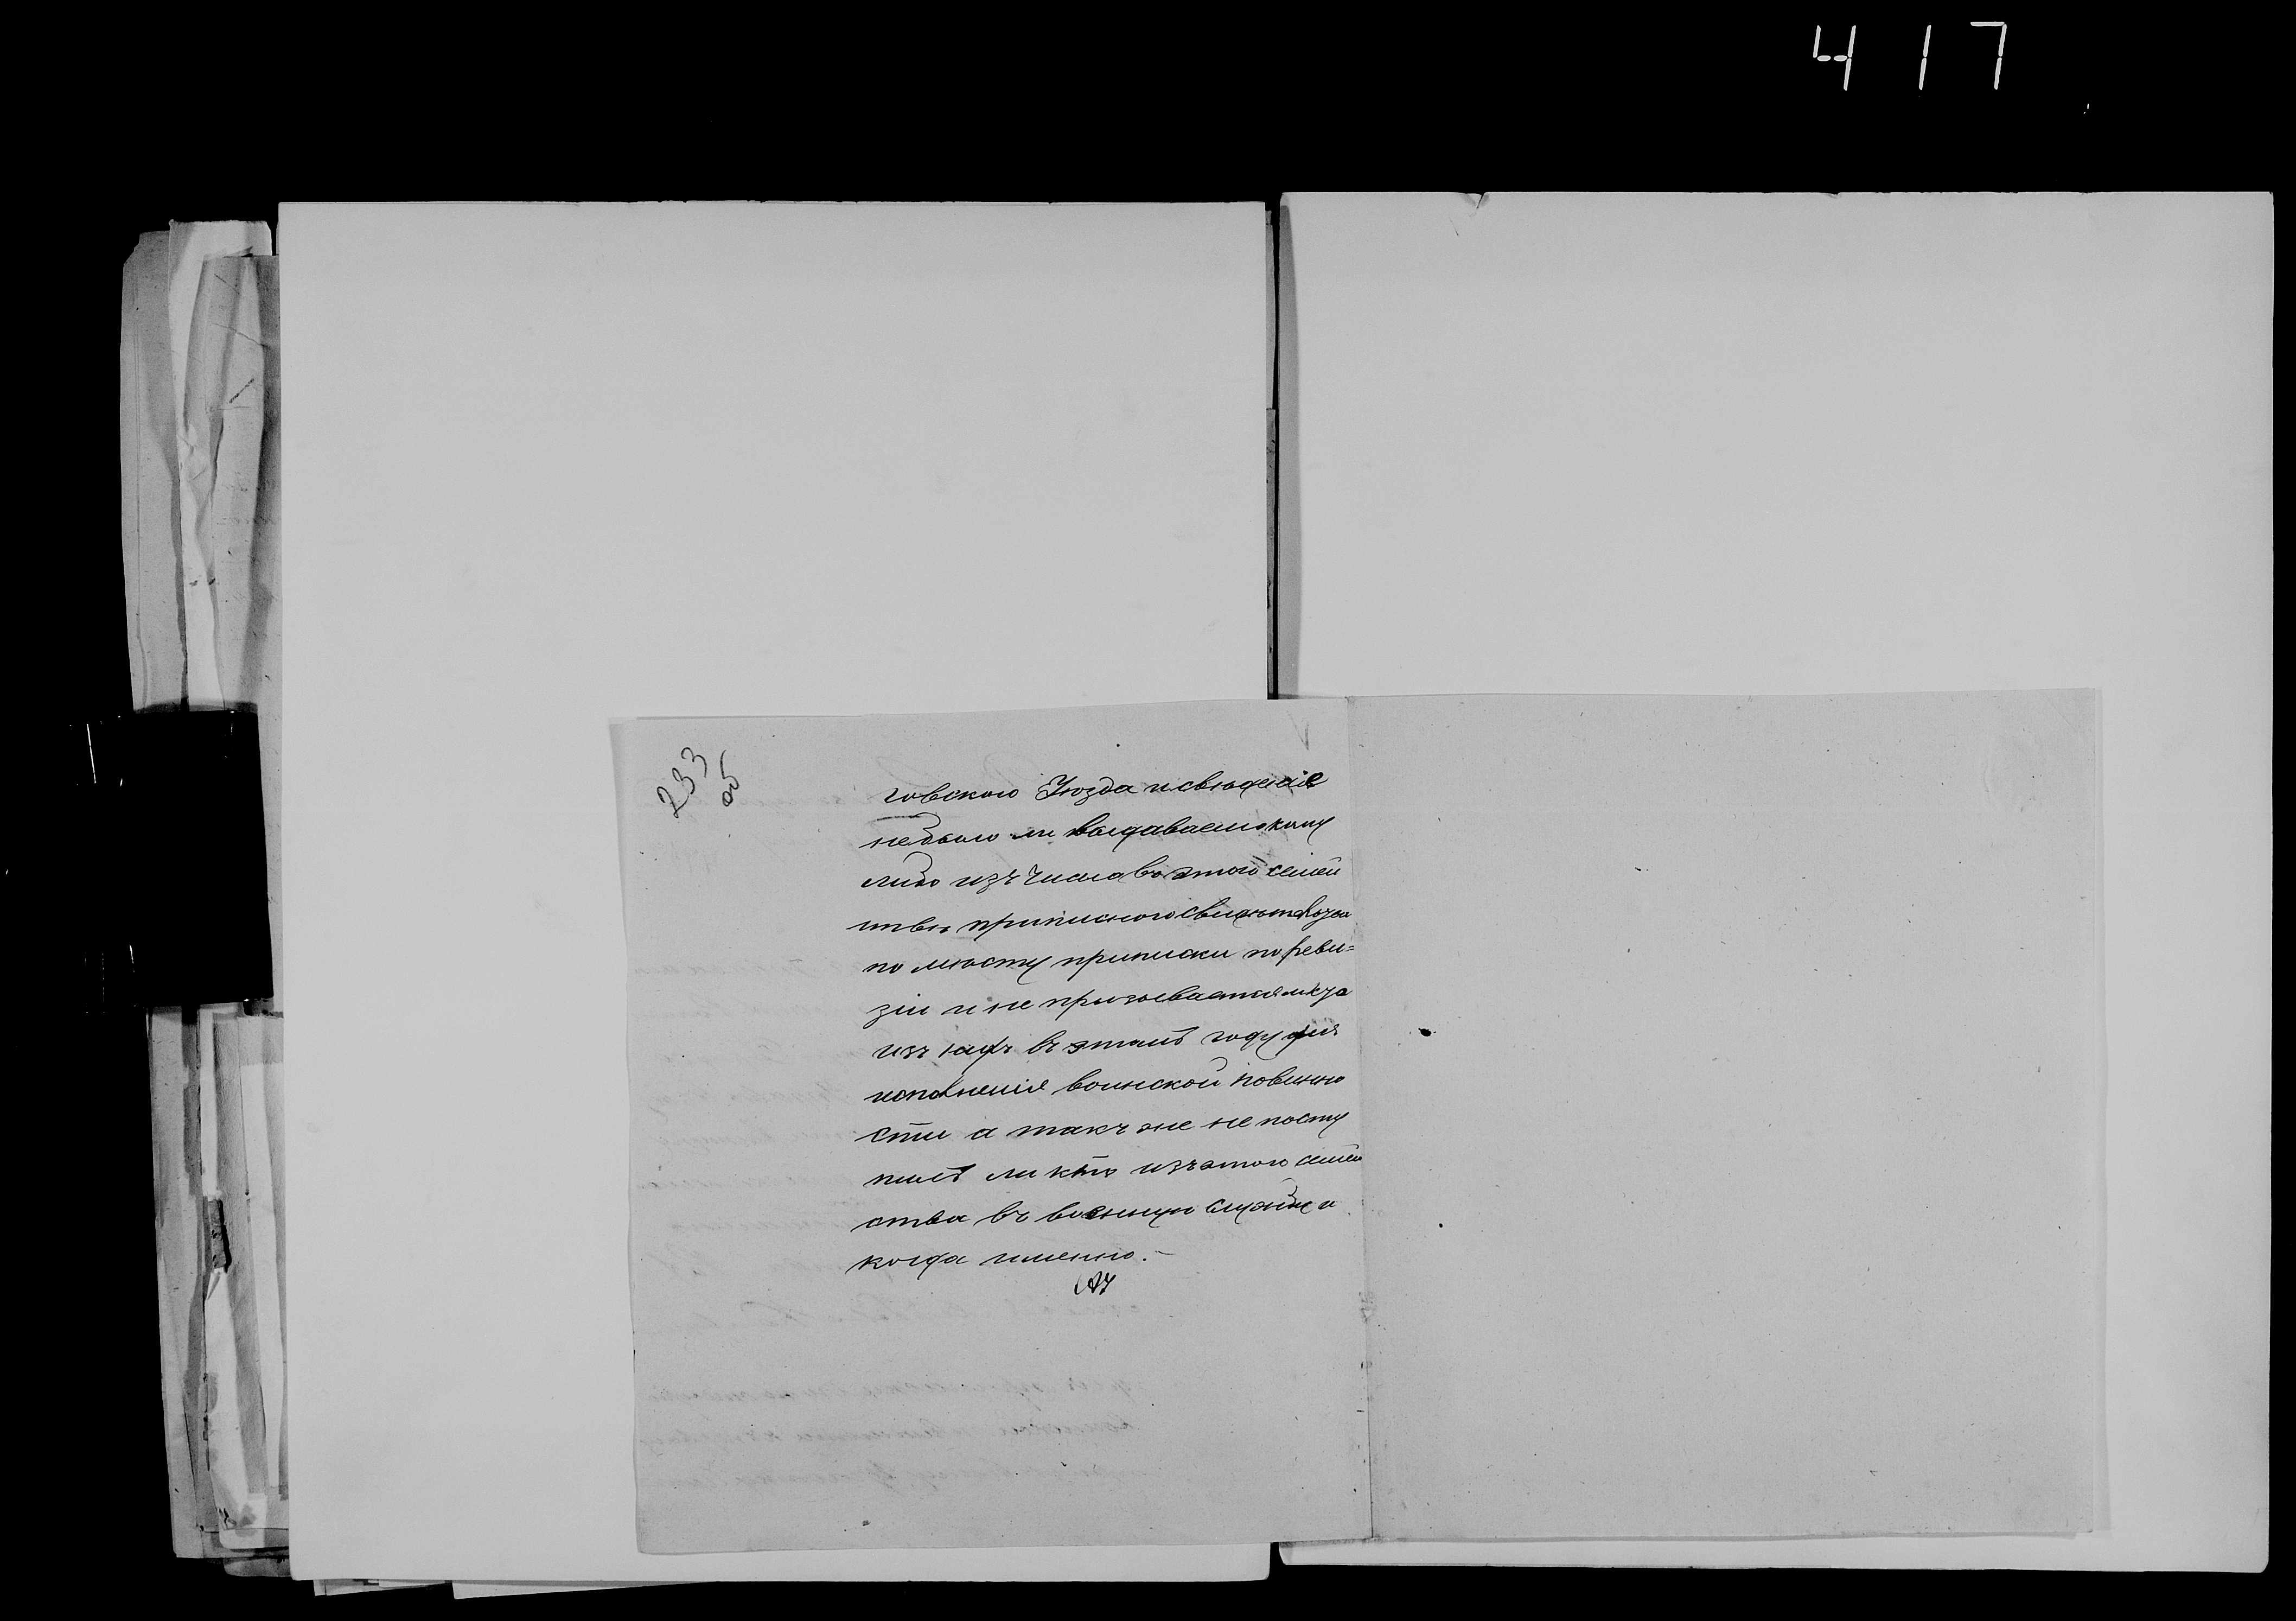 417
233
об
говского Уѣзда и свѣденіе
небыло ли выдаваемо кому
либо изъ числа въ этой семей
ствѣ приписного свидѣтельства
по мѣсту приписки по реви=
зіи и не призывается ли кто
изъ нихъ въ этомъ году для
исполненія воинской повинно
сти а такъ же не посту
пилъ ли кто изъ этого семей
ства въ военную службу и
когда именно.-